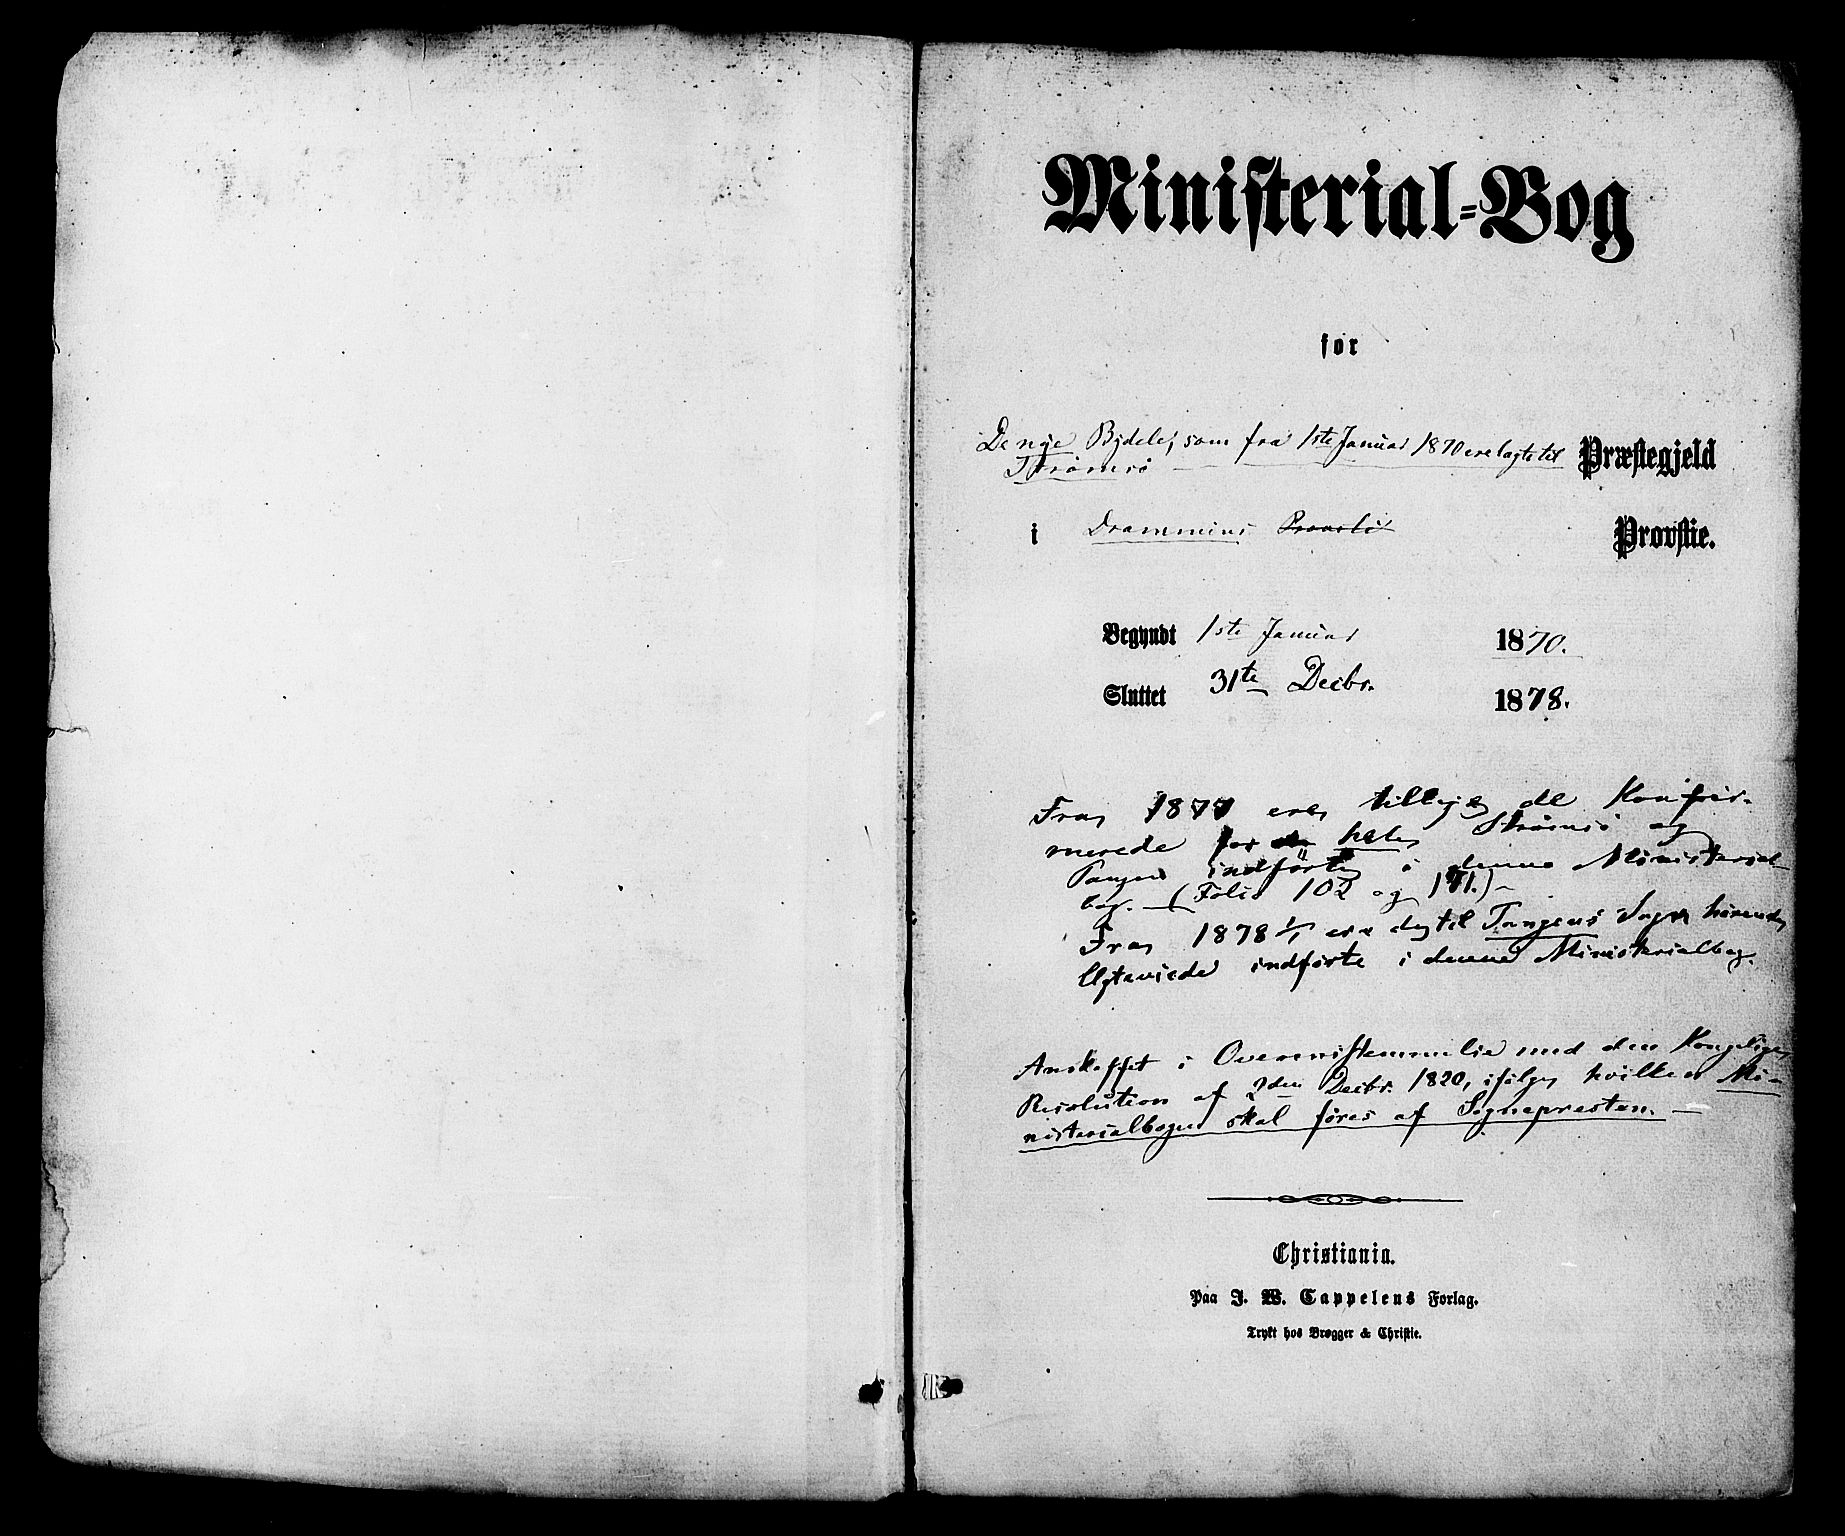 Ministerial-Bog
for
De nye Bydele, som fra 1ste Januar 1870 ere lagte til Præstegjeld
Strømsø
i Drammens Provsti Provstie.
Begyndt 1ste Januar 1870.
Sluttet 31te Decbr. 1878.
Fra 1877 ere tillige de Konfir-
merede for hele Strømsø og
Tangen indførte i denne Ministerial-
bog. — (Folio 102 og 171.) —
Fra 1878 1/1 ere de til Tangens Sogn hørende
Ægteviede indførte i denne Ministerialbog.
Anskaffet i Overensstemmelse med den Kongelige
Resolution af 2den Decbr. 1820, ifølge hvilken Mi-
nisterialbogen skal føres af Sognepresten. —
Christiania.
Paa J. W. Cappelens Forlag.
Trykt hos Brøgger & Christie.